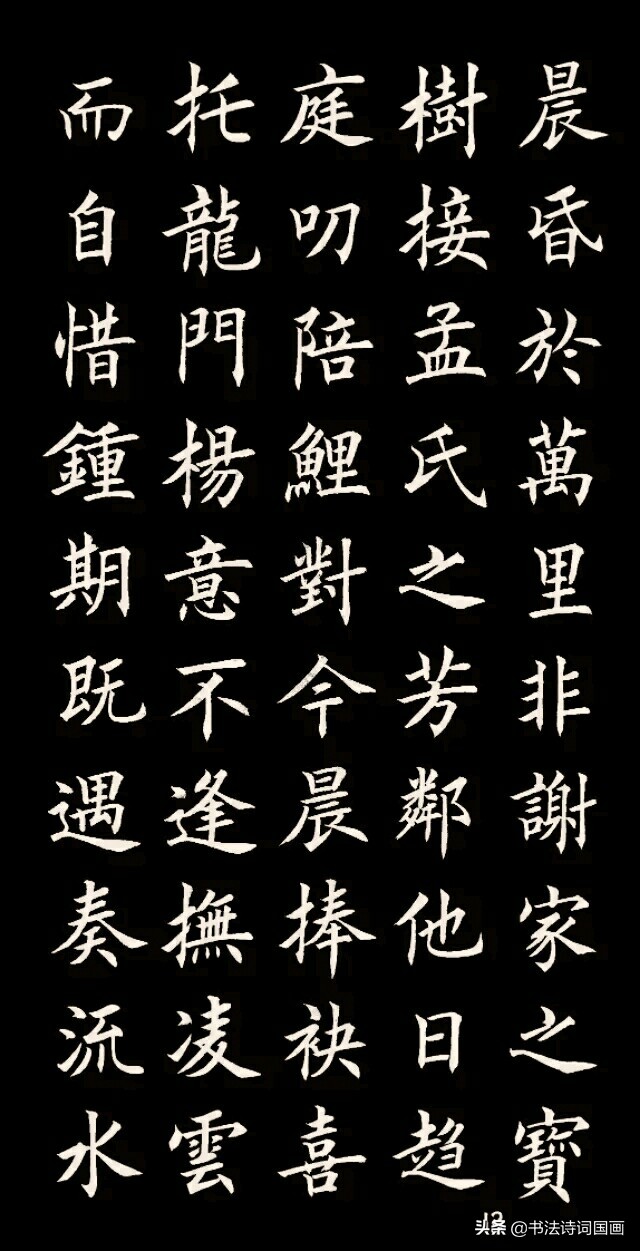 晨昏於萬里非謝家之寶
樹接孟氏之芳鄰他日趨
庭叨陪鯉對今晨捧袂喜
托龍門楊意不逢撫凌雲
而自惜鍾期既遇奏流水
12
头条 @书法诗词国画